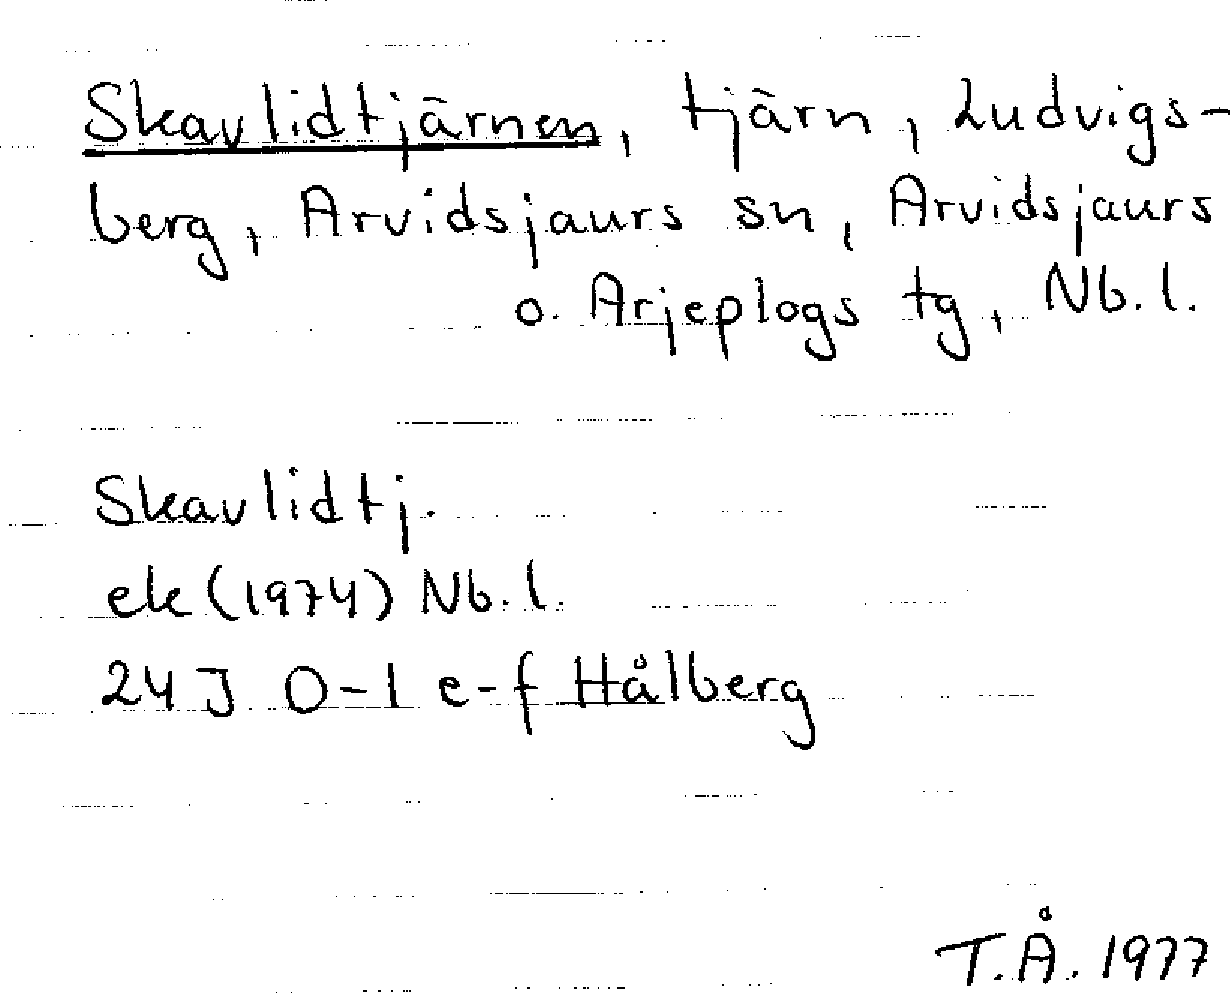 Skavlidtjärnen, tjärn, Ludvigs-
berg, Arvidsjaurs sn, Arvidsjaurs
o. Arjeplogs tg, Nb. l.
Skavlidtj.
ek (1974) Nb. l.
24 J 0-1 e-f Hålberg
T.Å. 1977